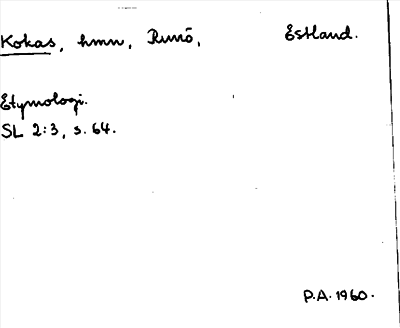 Kokas, hmn, Runö, Estland.
Etymologi.
SL 2:3, s. 64.
P.A. 1960.